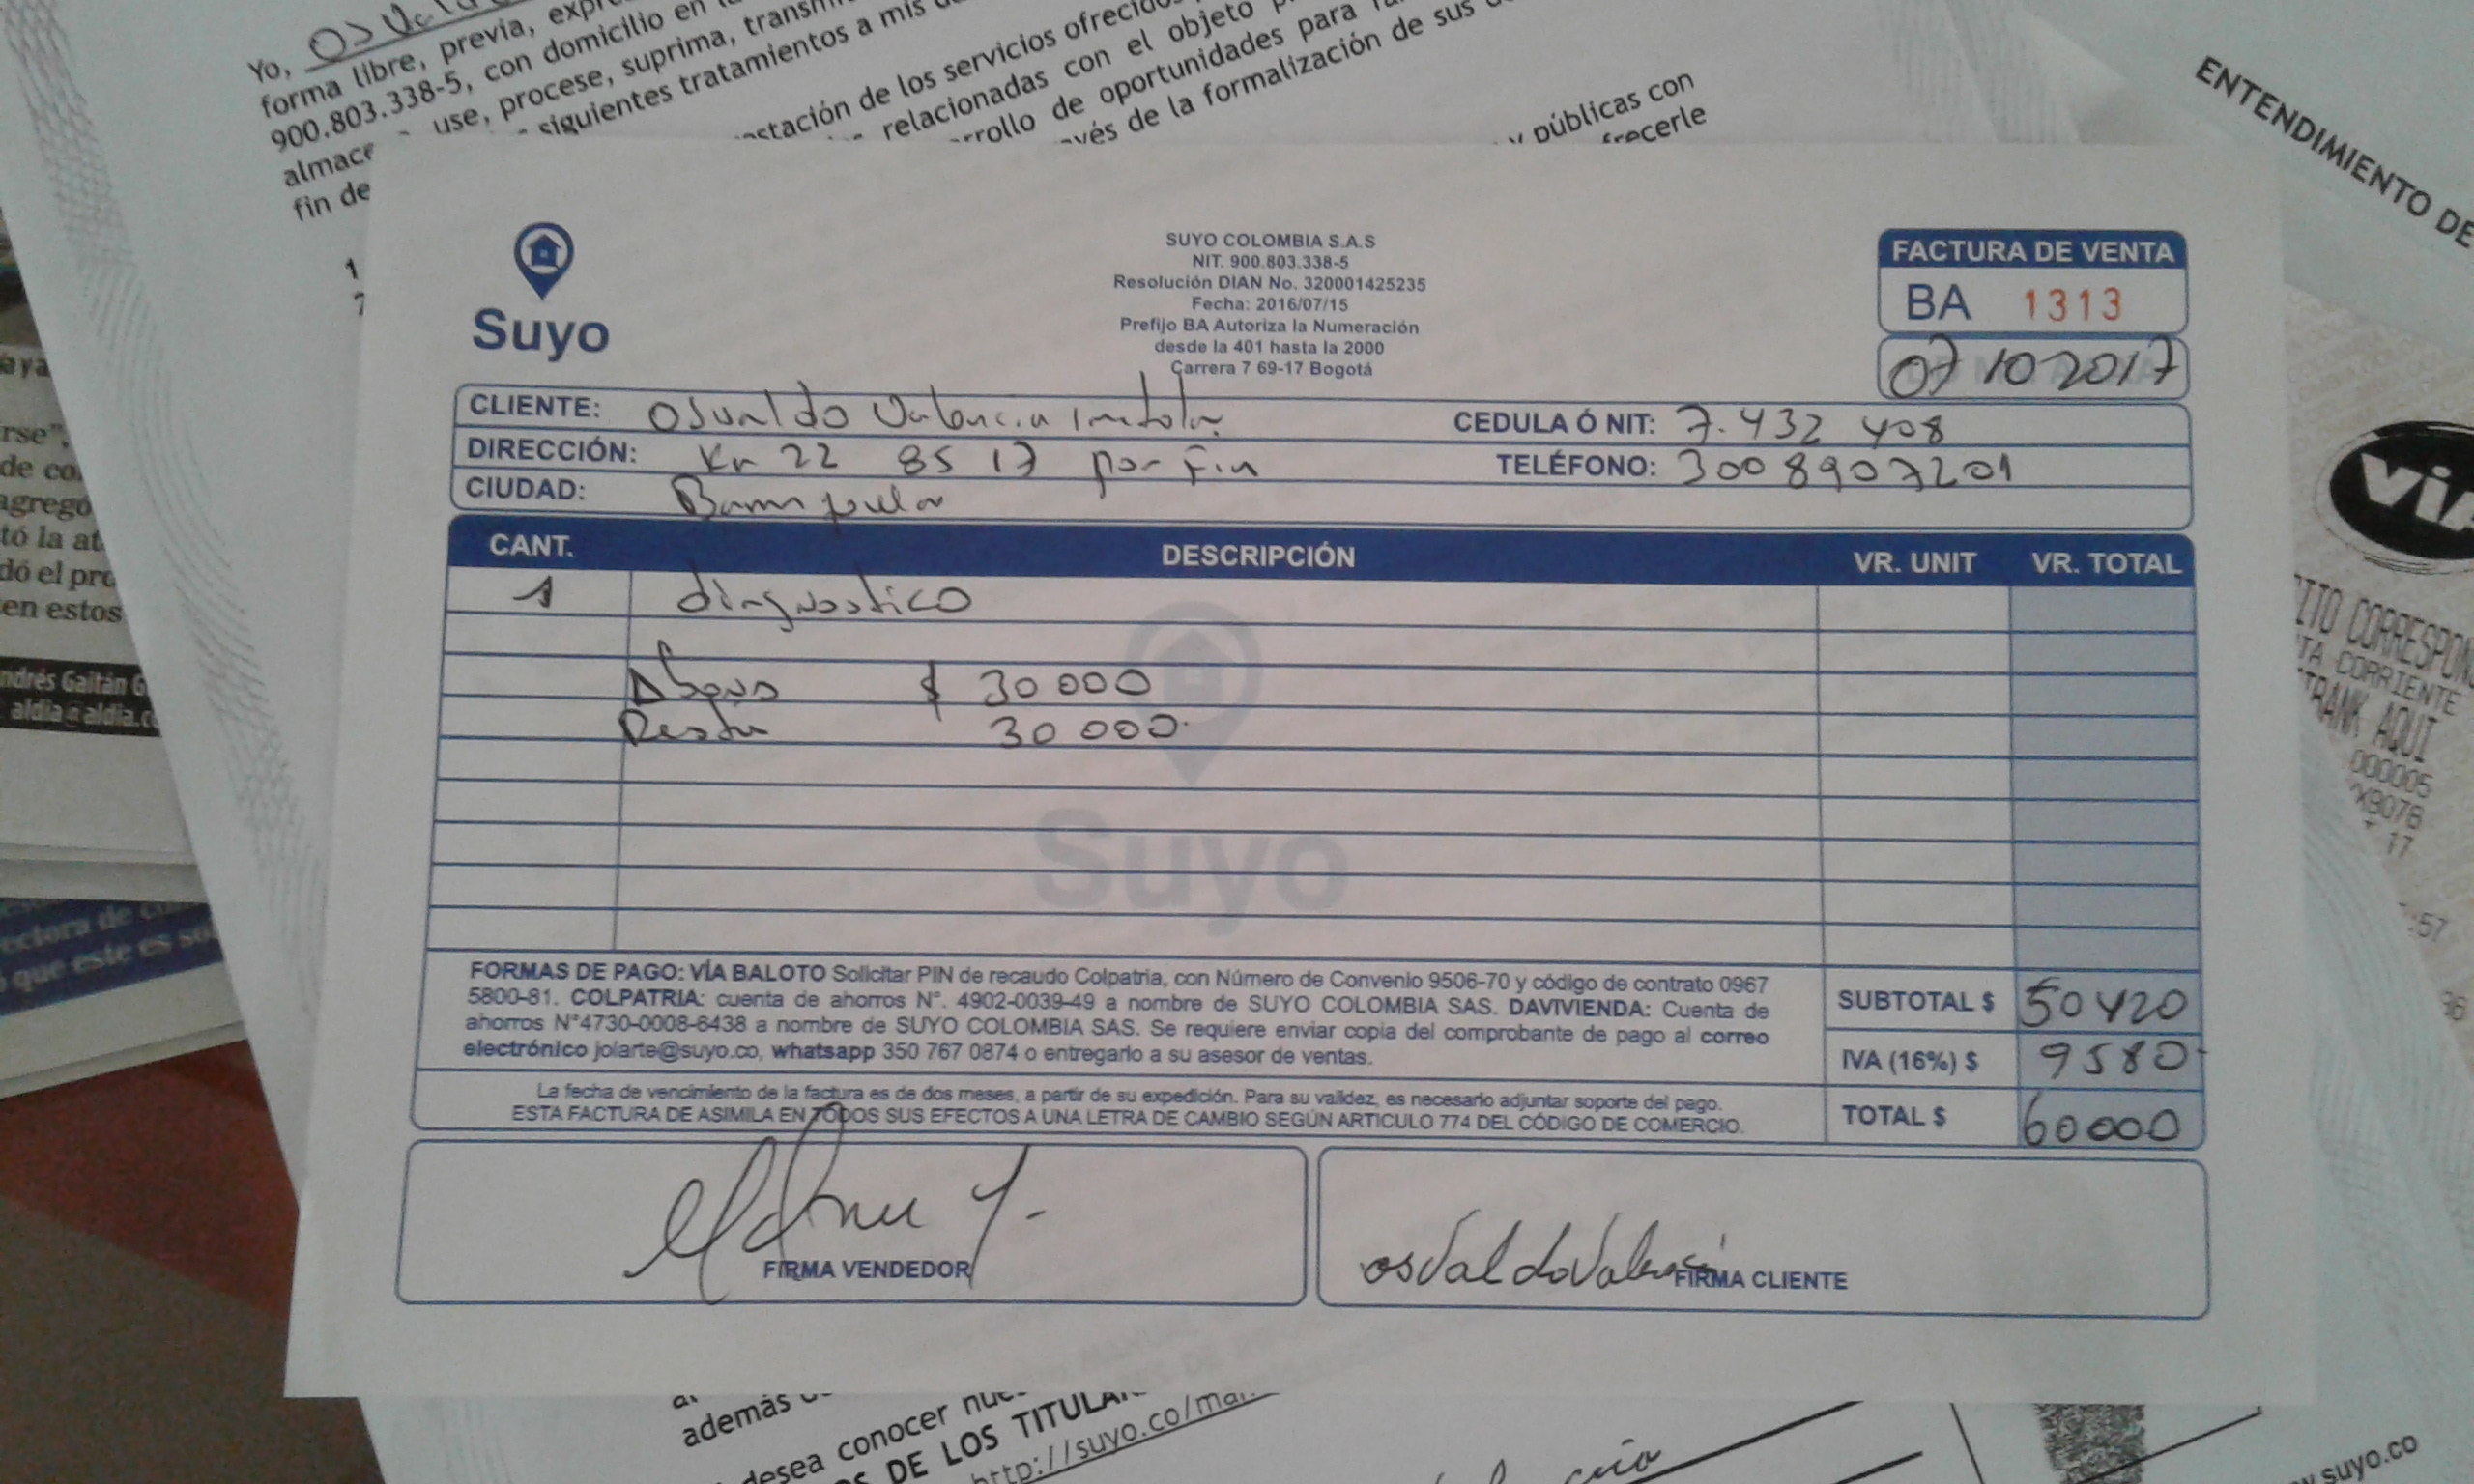 Yo, Osva
forma libre, previa,
900.803.338-5, con domicilio en
use, procese, suprima,
siguientes tratamientos a mis
fin de
de los servicios ofrecidos
relacionadas con el objeto
de oportunidades para
de la formalización de sus
y públicas con
ENTENDIMIENTO DE
Suyo
SUYO COLOMBIA S.A.S
NIT. 900.803.338-5
Resolución DIAN No. 320001425235
Fecha: 2016/07/15
Prefijo BA Autoriza la Numeración
desde la 401 hasta la 2000
Carrera 7 69-17 Bogotá
FACTURA DE VENTA
BA 1313
07 10 2017
CLIENTE: Osvaldo Valencia
CEDULA Ó NIT: 7.432 408
DIRECCIÓN: Kr 22 85 17 por fin
TELÉFONO: 300 8907201
CIUDAD:
CANT. DESCRIPCIÓN VR. UNIT VR. TOTAL
1 diagnostico
Abono $ 30 000
Resta 30 000
Suyo
FORMAS DE PAGO: VÍA BALOTO Solicitar PIN de recaudo Colpatria, con Número de Convenio 9506-70 y código de contrato 0967
5800-81. COLPATRIA: cuenta de ahorros N°. 4902-0039-49 a nombre de SUYO COLOMBIA SAS. DAVIVIENDA: Cuenta de
ahorros N°4730-0008-6438 a nombre de SUYO COLOMBIA SAS. Se requiere enviar copia del comprobante de pago al correo
electrónico jolarte@suyo.co, whatsapp 350 767 0874 o entregarlo a su asesor de ventas.
SUBTOTAL $ 50420
IVA (16%) $ 9580
La fecha de vencimiento de la factura es de dos meses, a partir de su expedición. Para su validez, es necesario adjuntar soporte del pago.
ESTA FACTURA DE ASIMILA EN TODOS SUS EFECTOS A UNA LETRA DE CAMBIO SEGÚN ARTICULO 774 DEL CÓDIGO DE COMERCIO.
TOTAL $ 60000
FIRMA VENDEDOR
osvaldo Valencia
FIRMA CLIENTE
además
desea conocer
DE LOS
http://suyo.co/
suyo.co
rse",
tó la
en estos
ndrés Gaitán G
que este es
CORRESPON
TA CORRIENTE
AQUI
000005